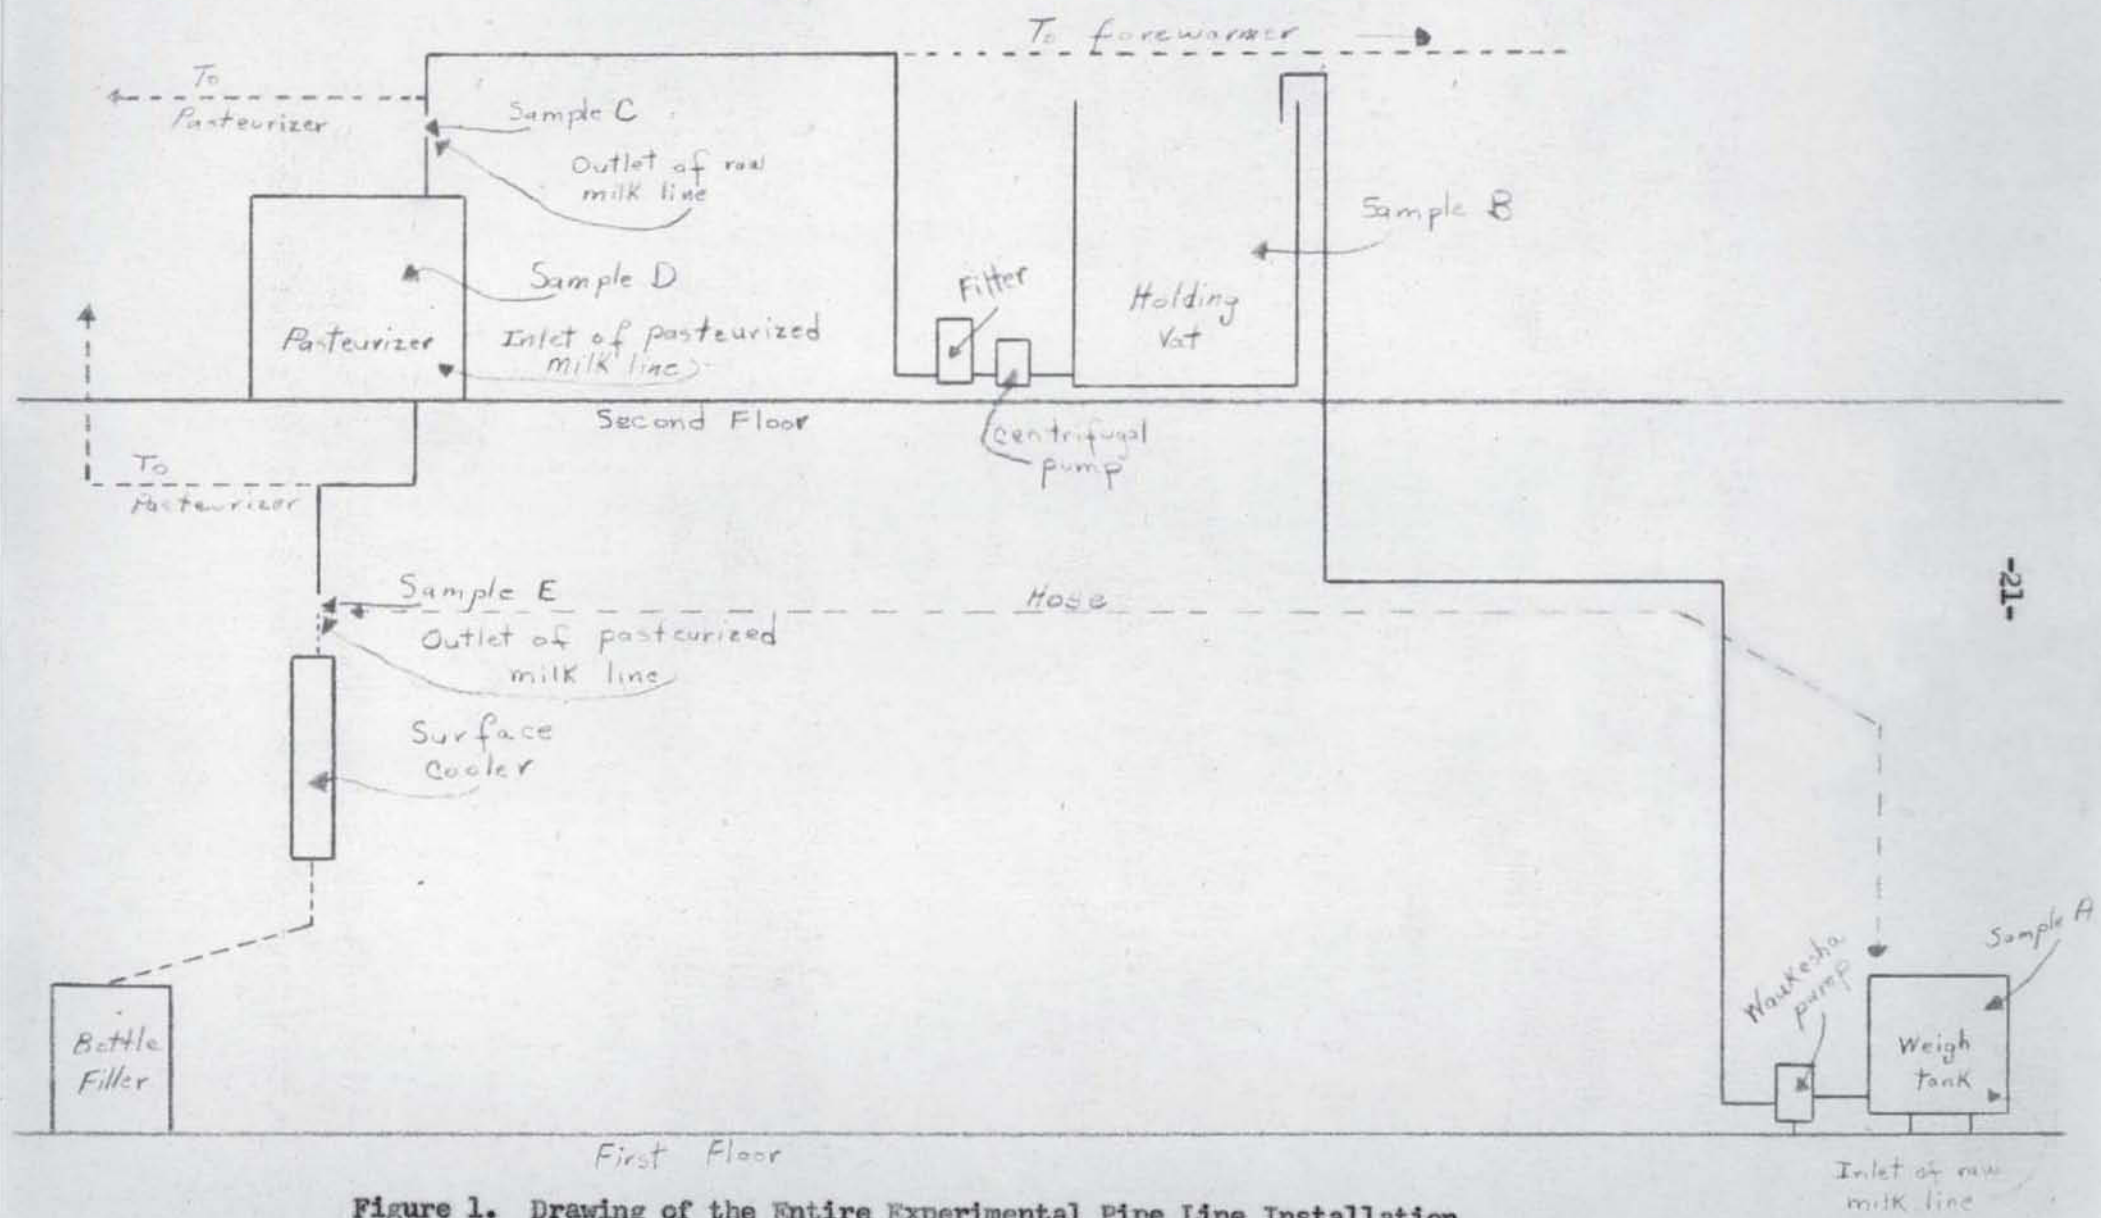 To forewarmer
To
Pasteurizer
Sample C
Outlet of raw
milk line
Sample B
Sample D
Filter
Holding
Vat
Pasteurizer
Inlet of pasteurized
milk line
Second Floor
Centrifugal
pump
To
Pasteurizer
Sample E
Hose
Outlet of pasteurized
milk line
-21-
Surface
Cooler
Sample A
Waukesha
pump
Weigh
tank
Bottle
Filler
First Floor
Inlet of raw
milk line
Figure 1. Drawing of the Entire Experimental Pipe Line Installation